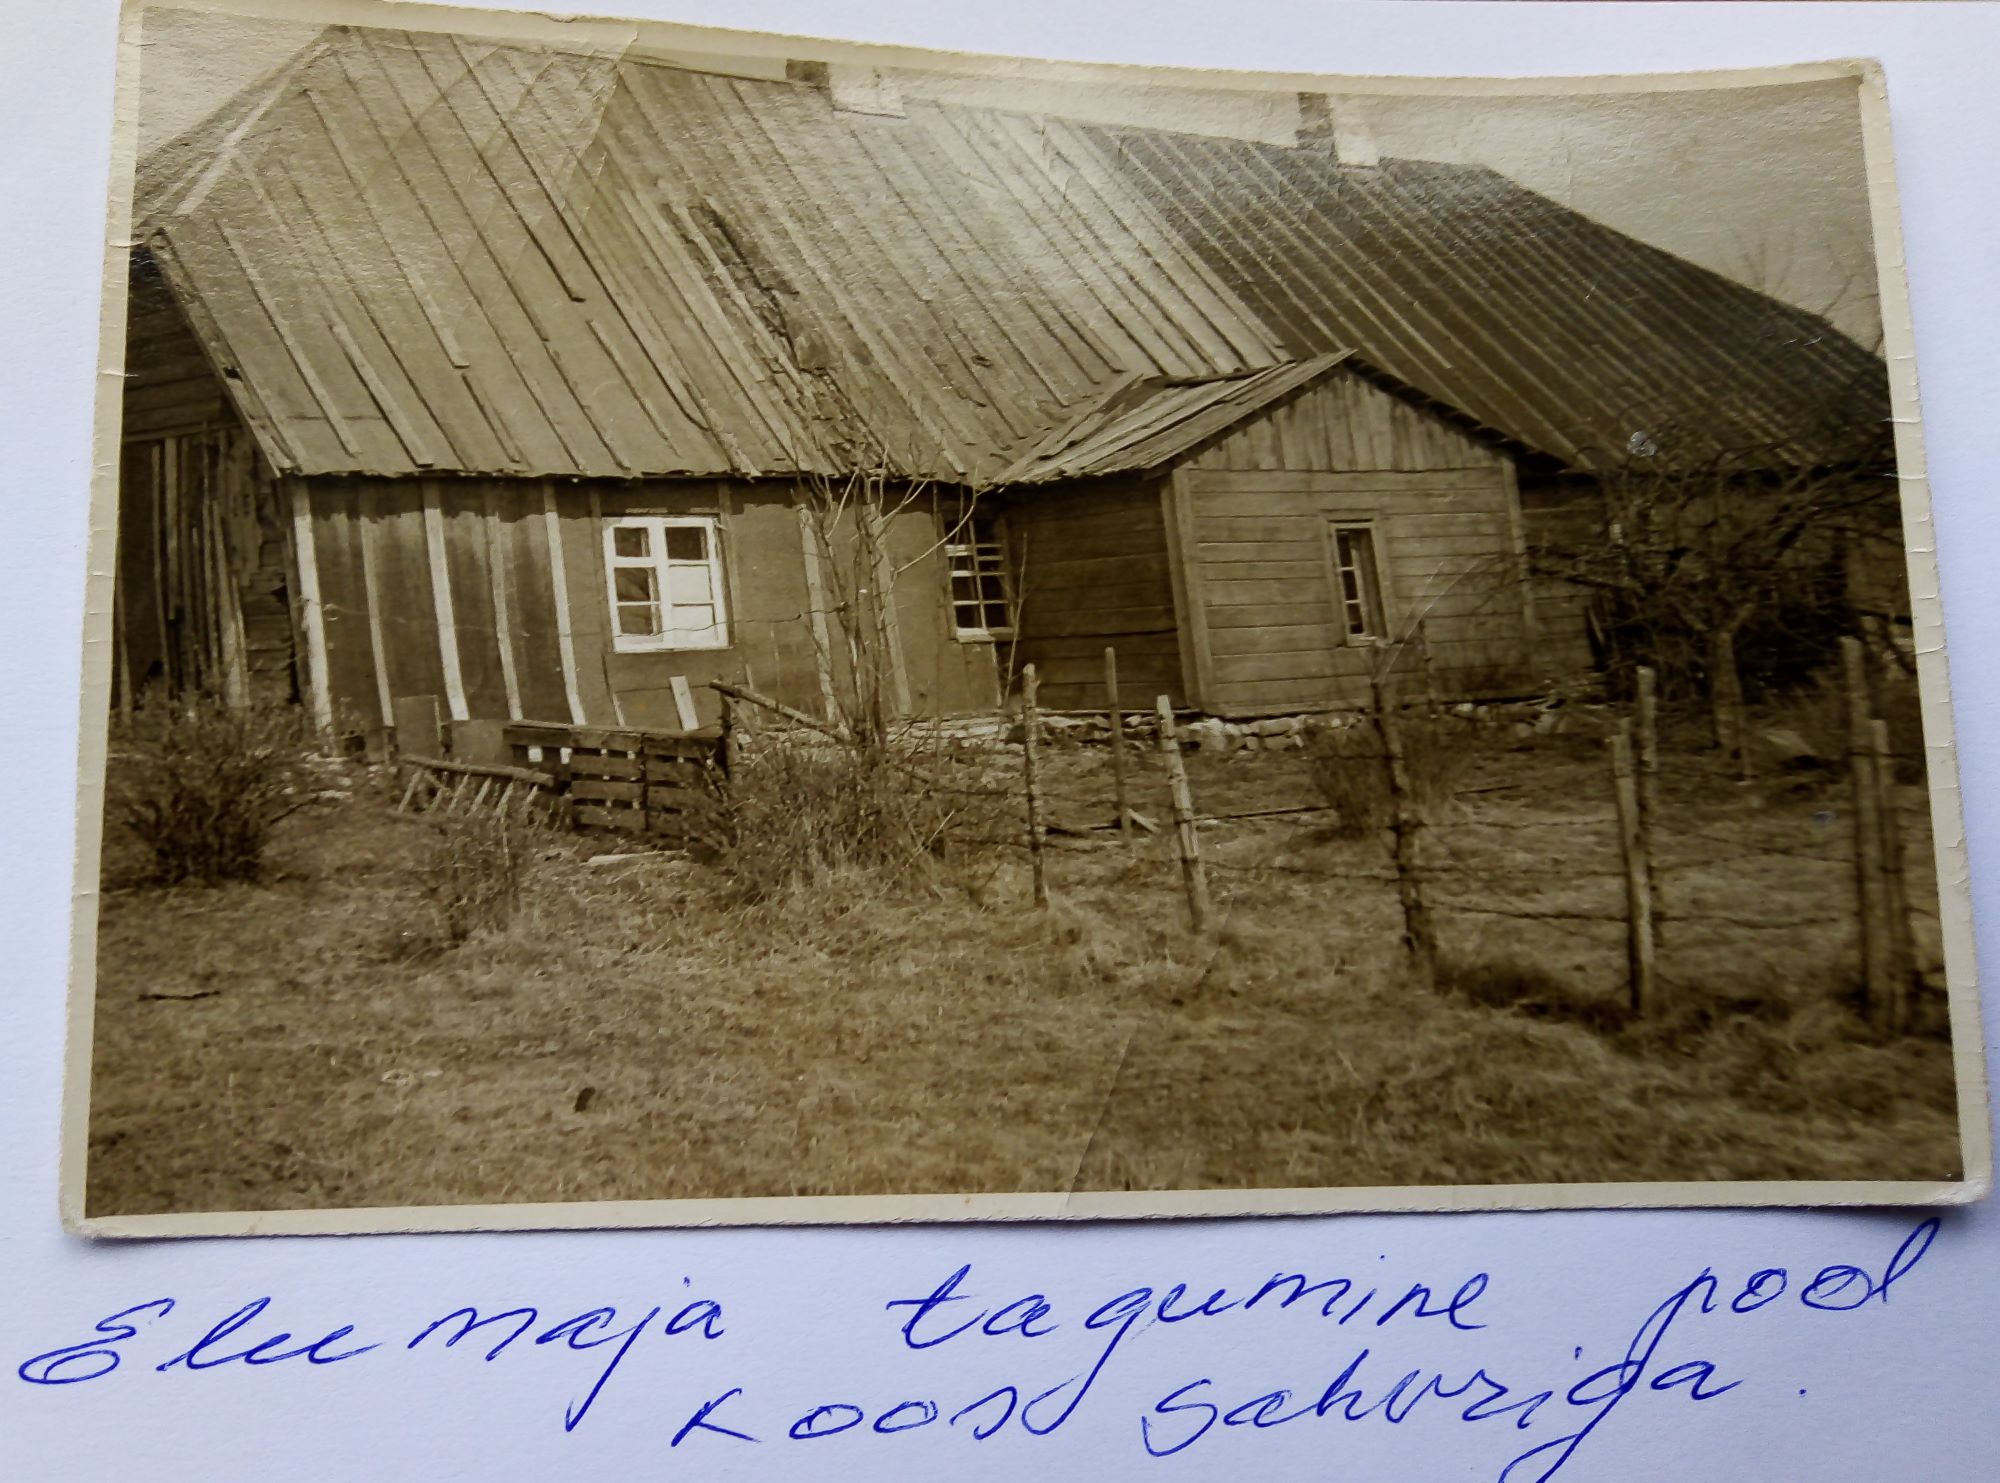 Elumaja tagumine pool
koos sahvriga.